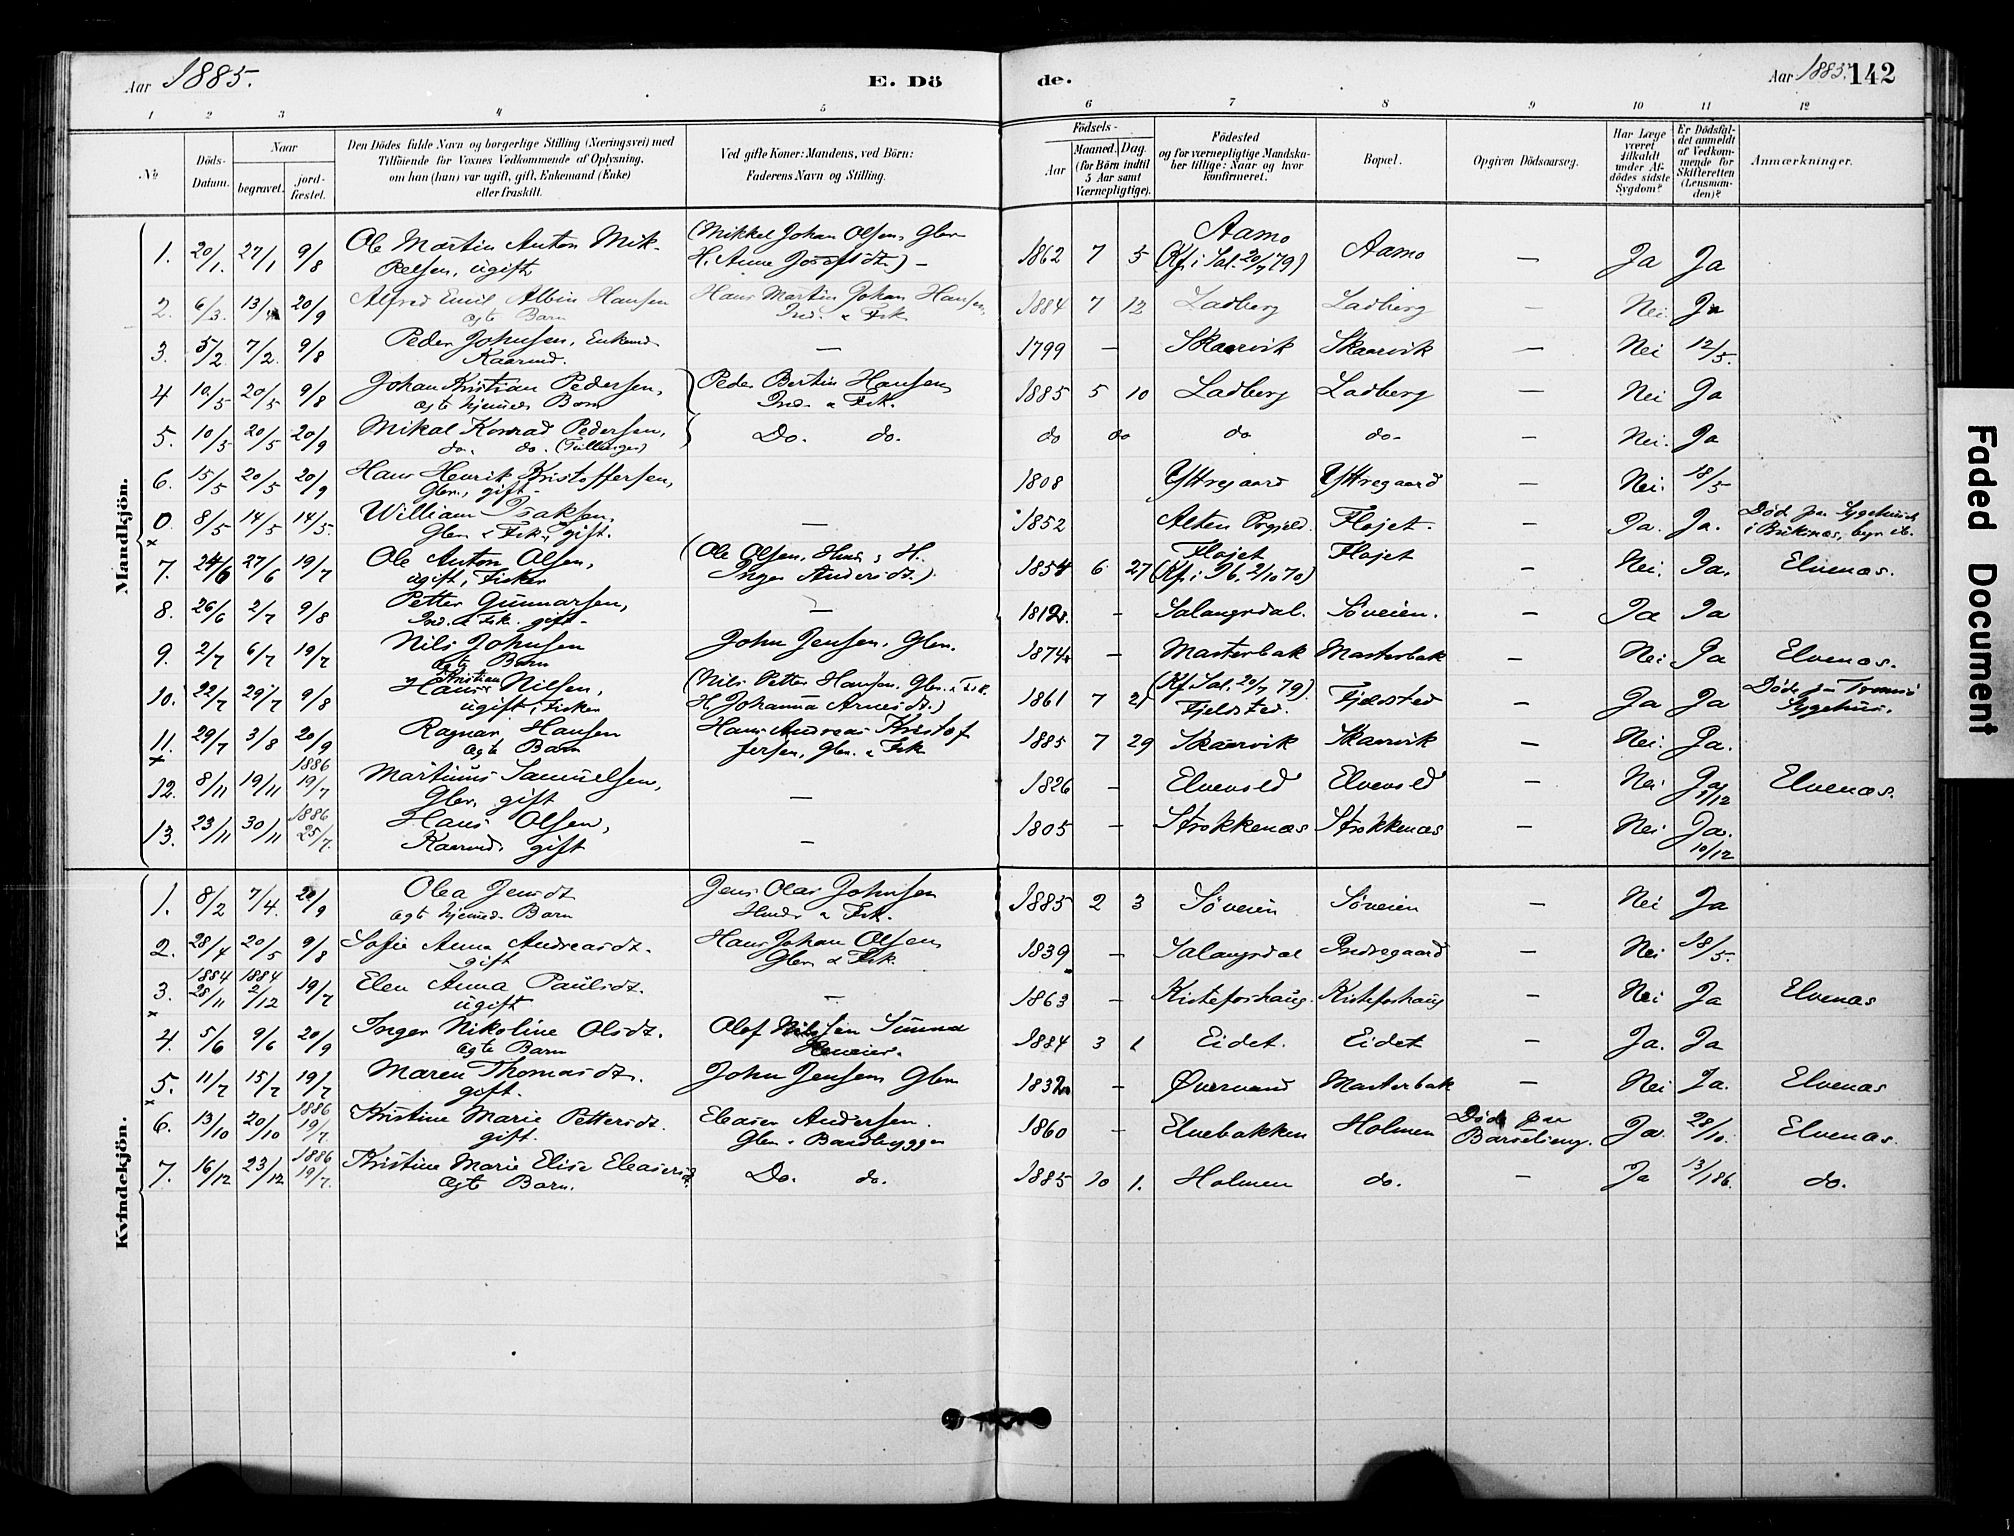 Aar 1885. E. Dö de. Aar 1885. 142
1 2 3 4 5 6 7 8 9 10 11 12
No
Döds-Datum.
Naar
begravet.
jord-fæstet.
Den Dödes fulde Navn og borgerlige Stilling (Næringsvei) med
Tilföiende for Voxnes Vedkommende af Oplysning,
om han (hun) var ugift, gift, Enkemand (Enke)
eller fraskilt.
Ved gifte Koner: Mandens, ved Börn:
Faderens Navn og Stilling.
Födsels-
Aar
Maaned. Dag.
(for Börn indtil
5 Aar samt
Værnepligtige).
Födested
og for værnepligtige Mandska-
ber tillige: Naar og hvor
konfirmeret.
Bopæl.
Opgiven Dödsaarsag.
Har Læge
været
tilkaldt
under Af-
dödes sidste
Sygdom?
Er Dödsfal-
det anmeldt
af Vedkom-
mende for
Skifteretten
(Lensman-
den)?
Anmærkninger.
Mandkjön.
1. 20/1. 27/1 9/8 Ole Martin Anton Mik- (Mikkel Johan Olsen, Gbr. 1862 7 5 Aamo Aamo — Ja Ja
kelsen, ugift H. Anne Josefsdt.) — (Kf. i Sal. 20/7 79)
2. 6/3. 13/4 20/9 Alfred Emil Albin Hansen Hans Martin Johan Hansen 1884 7 12 Ladberg Ladberg — Nei. Ja
ægte Barn Ind. & Fisk
3. 5/2 7/2. 9/8 Peder Johnsen, Enkemd. — 1799 — Skaarvik Skaarvik — Nei 12/5.
Kaarmd.
4 10/5 20/5 9/8 Johan Kristian Pedersen, Peder Bertin Hansen 1885 5 10 Ladberg Ladberg — Nei Ja
ægte hjemmed. Barn Ind. & Fisk.
5. 10/5 20/5 20/9 Mikal Konrad Pedersen, Do. do. do do do do — Nei. Ja
do. do. (Tvillinger)
6. 15/5 20/5 20/9 Hans Henrik Kristoffersen, 1808 Yttregaard Yttregaard — Nei. 18/5
Gbr., gift —
0. 8/5 14/5 14/5. William Isaksen, — 1852 Alten Prgjeld. Fløjet. — Ja. Ja. Død paa Sygehuset
Gbr. & Fisk., gift.
7. 24/6 27/6 19/7 Ole Anton Olsen, (Ole Olsen, Husm. & H. 1854 6 27 Fløjet Fløjet — Nei. Ja. Elvenæs.
ugift, Fisker Inger Andersdt.) (Kf. i Ib. 2/10 70)
8. 26/6 2/7 9/8 Petter Gunnarsen, — 1812. — Salangsdal. Søveien. — Ja Ja
Ind. & Fisk. gift —
9. 2/7 6/7 19/7 Nils Johnsen John Jensen, Gbr. 1874 — Masterbak Masterbak — Nei Ja Elvenæs.
ægte Barn
10. 22/7 29/7 9/8 Hans Kristian Nilsen, (Nils Petter Hansen, Gbr. & Fisk. 1861 7 21 (Kf. i Sal. 20/7 79). Fjeldsted — Ja Ja Døde paa Tromsø
ugift, Fisker H. Johanna Arnesdt.) Fjeldsted. Sygehus.
11. 29/7 3/8 20/9 Ragnar Hansen Hans Andreas Kristof 1885 7 29 Skaarvik Skaarvik — Nei. Ja.
ægte Barn fersen, Gbr. & Fisk
12. 8/11 19/11 1886 19/7 Martinus Samuelsen, — 1826 — Elvevold Elvevold — Nei Ja 1/12 Elvenæs.
Gbr., gift
13. 23/11 30/11 1886 25/7. Hans Olsen, — 1805 — Strokkenæs Strokkenæs — Nei Ja. 10/12
Kaarmd. gift
Kvindekjön.
1. 8/2 7/4. 20/9 Olea Jensdt. Jens Olai Johnsen 1885 2 3 Søveien Søveien — Nei Ja
ægte hjemmed. Barn Husm. & Fisk.
2. 28/4 20/5 9/8 Sofie Anna Andreasdt. Hans Johan Olsen 1839 — Salangsdal Indregaard — Nei 18/5.
gift Gbr. & Fisk.
3. 1884 28/11 1884 2/12 19/7 Elen Anna Paulsdt. — 1863 — Kisteforshaug. Kisteforshaug — Nei Ja Elvenæs
ugift
4. 5/6 9/6 20/9 Inger Nikoline Olsdt. Olof Nilssen 1884 3 1 Eidet. Eidet — Ja. Ja
ægte Barn
5. 11/7 15/7 19/7 Maren Thomasdt. John Jensen Gbr. 1832 — Øvervand Masterbak — Nei Ja. Elvenæs
gift.
6. 13/10 20/10 1886 19/7. Kristine Marie Pettersdt. Eleaser Andersen. 1860 — Elvebakken Holmen Døde paa Ja. 28/10. Elvenæs.
gift. Gbr. & Baadbygger Barselseng.
7. 16/12 23/12 1886 19/7. Kristine Marie Elise Eleasersdt. Do. do. 1885 10 1. Holmen do. — Ja 13/1 86. do.
ægte Barn.
Faded Document